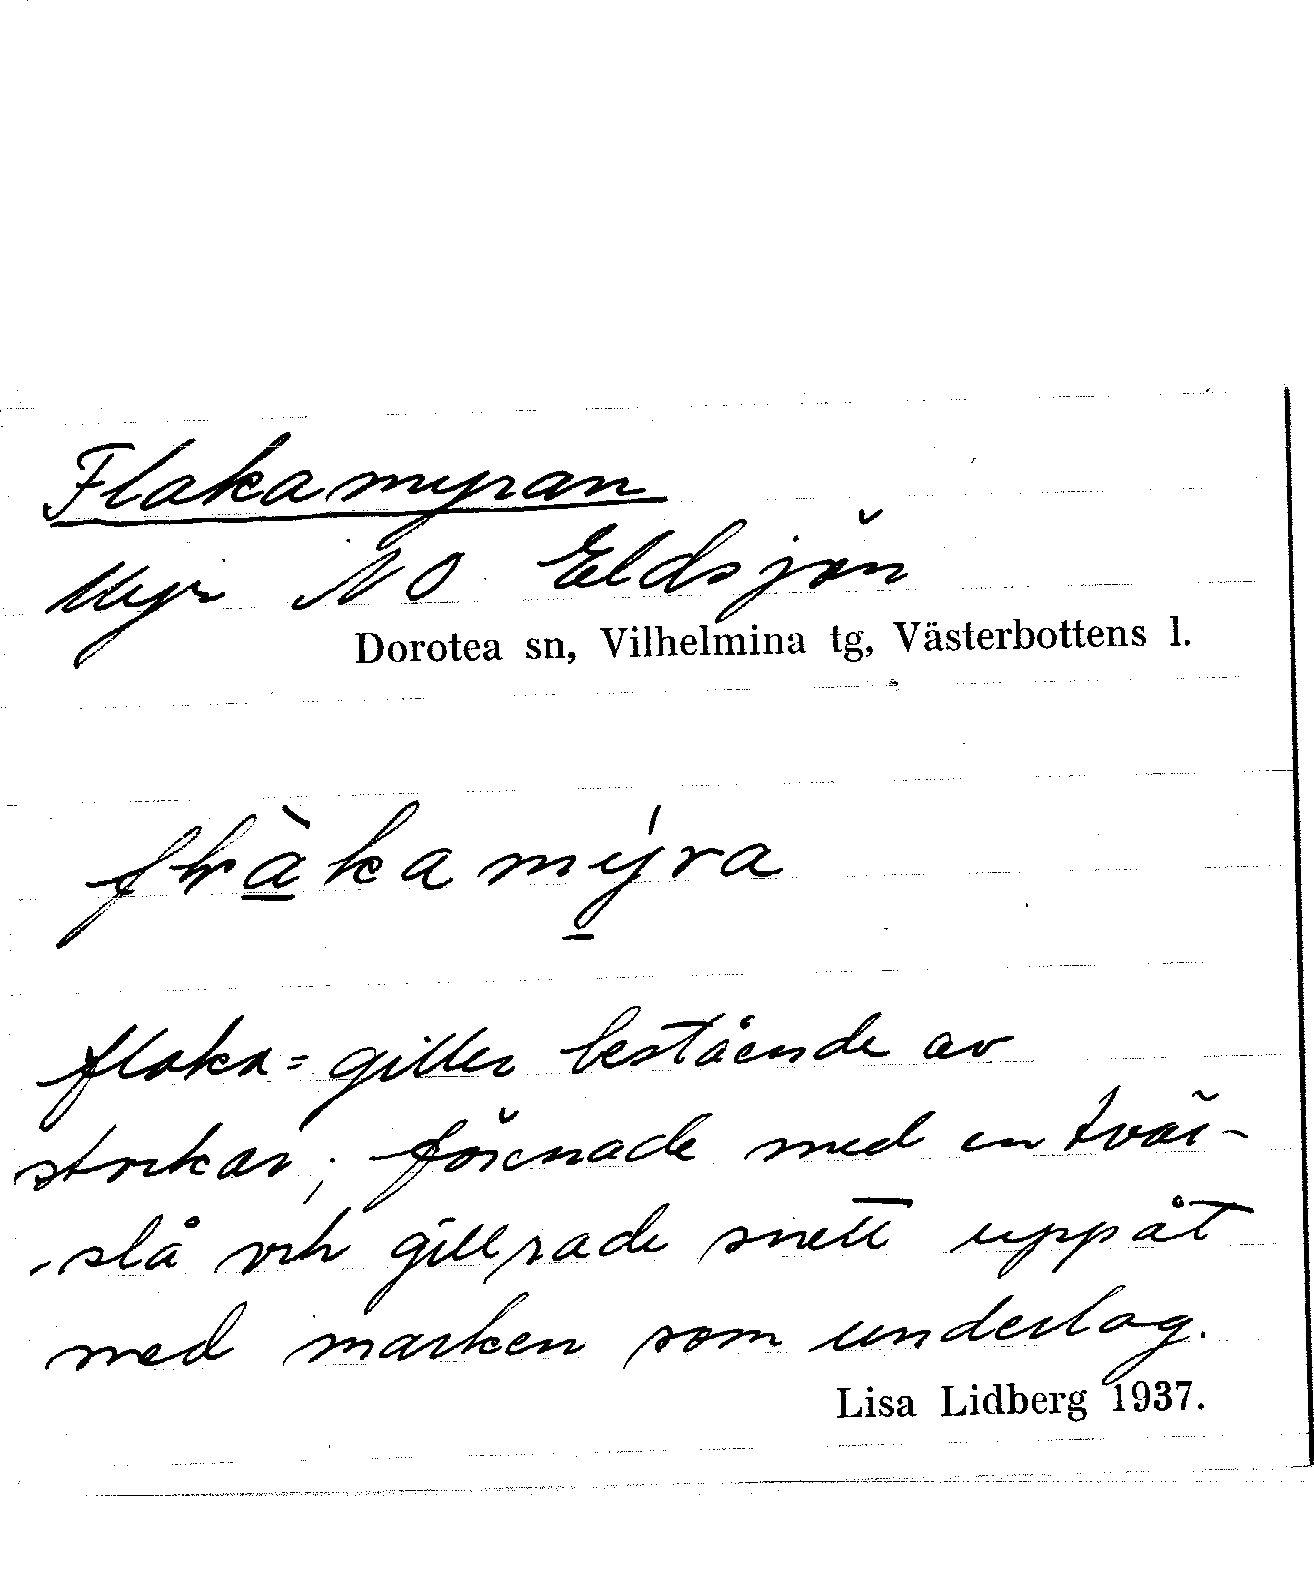 Flakamyran
Myr NO Eldsjön
Dorotea sn, Vilhelmina tg, Västerbottens l.
flàkamýra
flaka = giller bestående av
stockar, förenade med en tvär-
slå och gillrade snett uppåt
med marken som underlag.
Lisa Lidberg 1937.